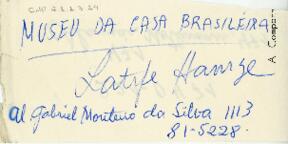 MUSEU DA CASA BRASILEIRA
Latife Hamze
al Gabriel Monteiro da Silva 1113
81-5228.